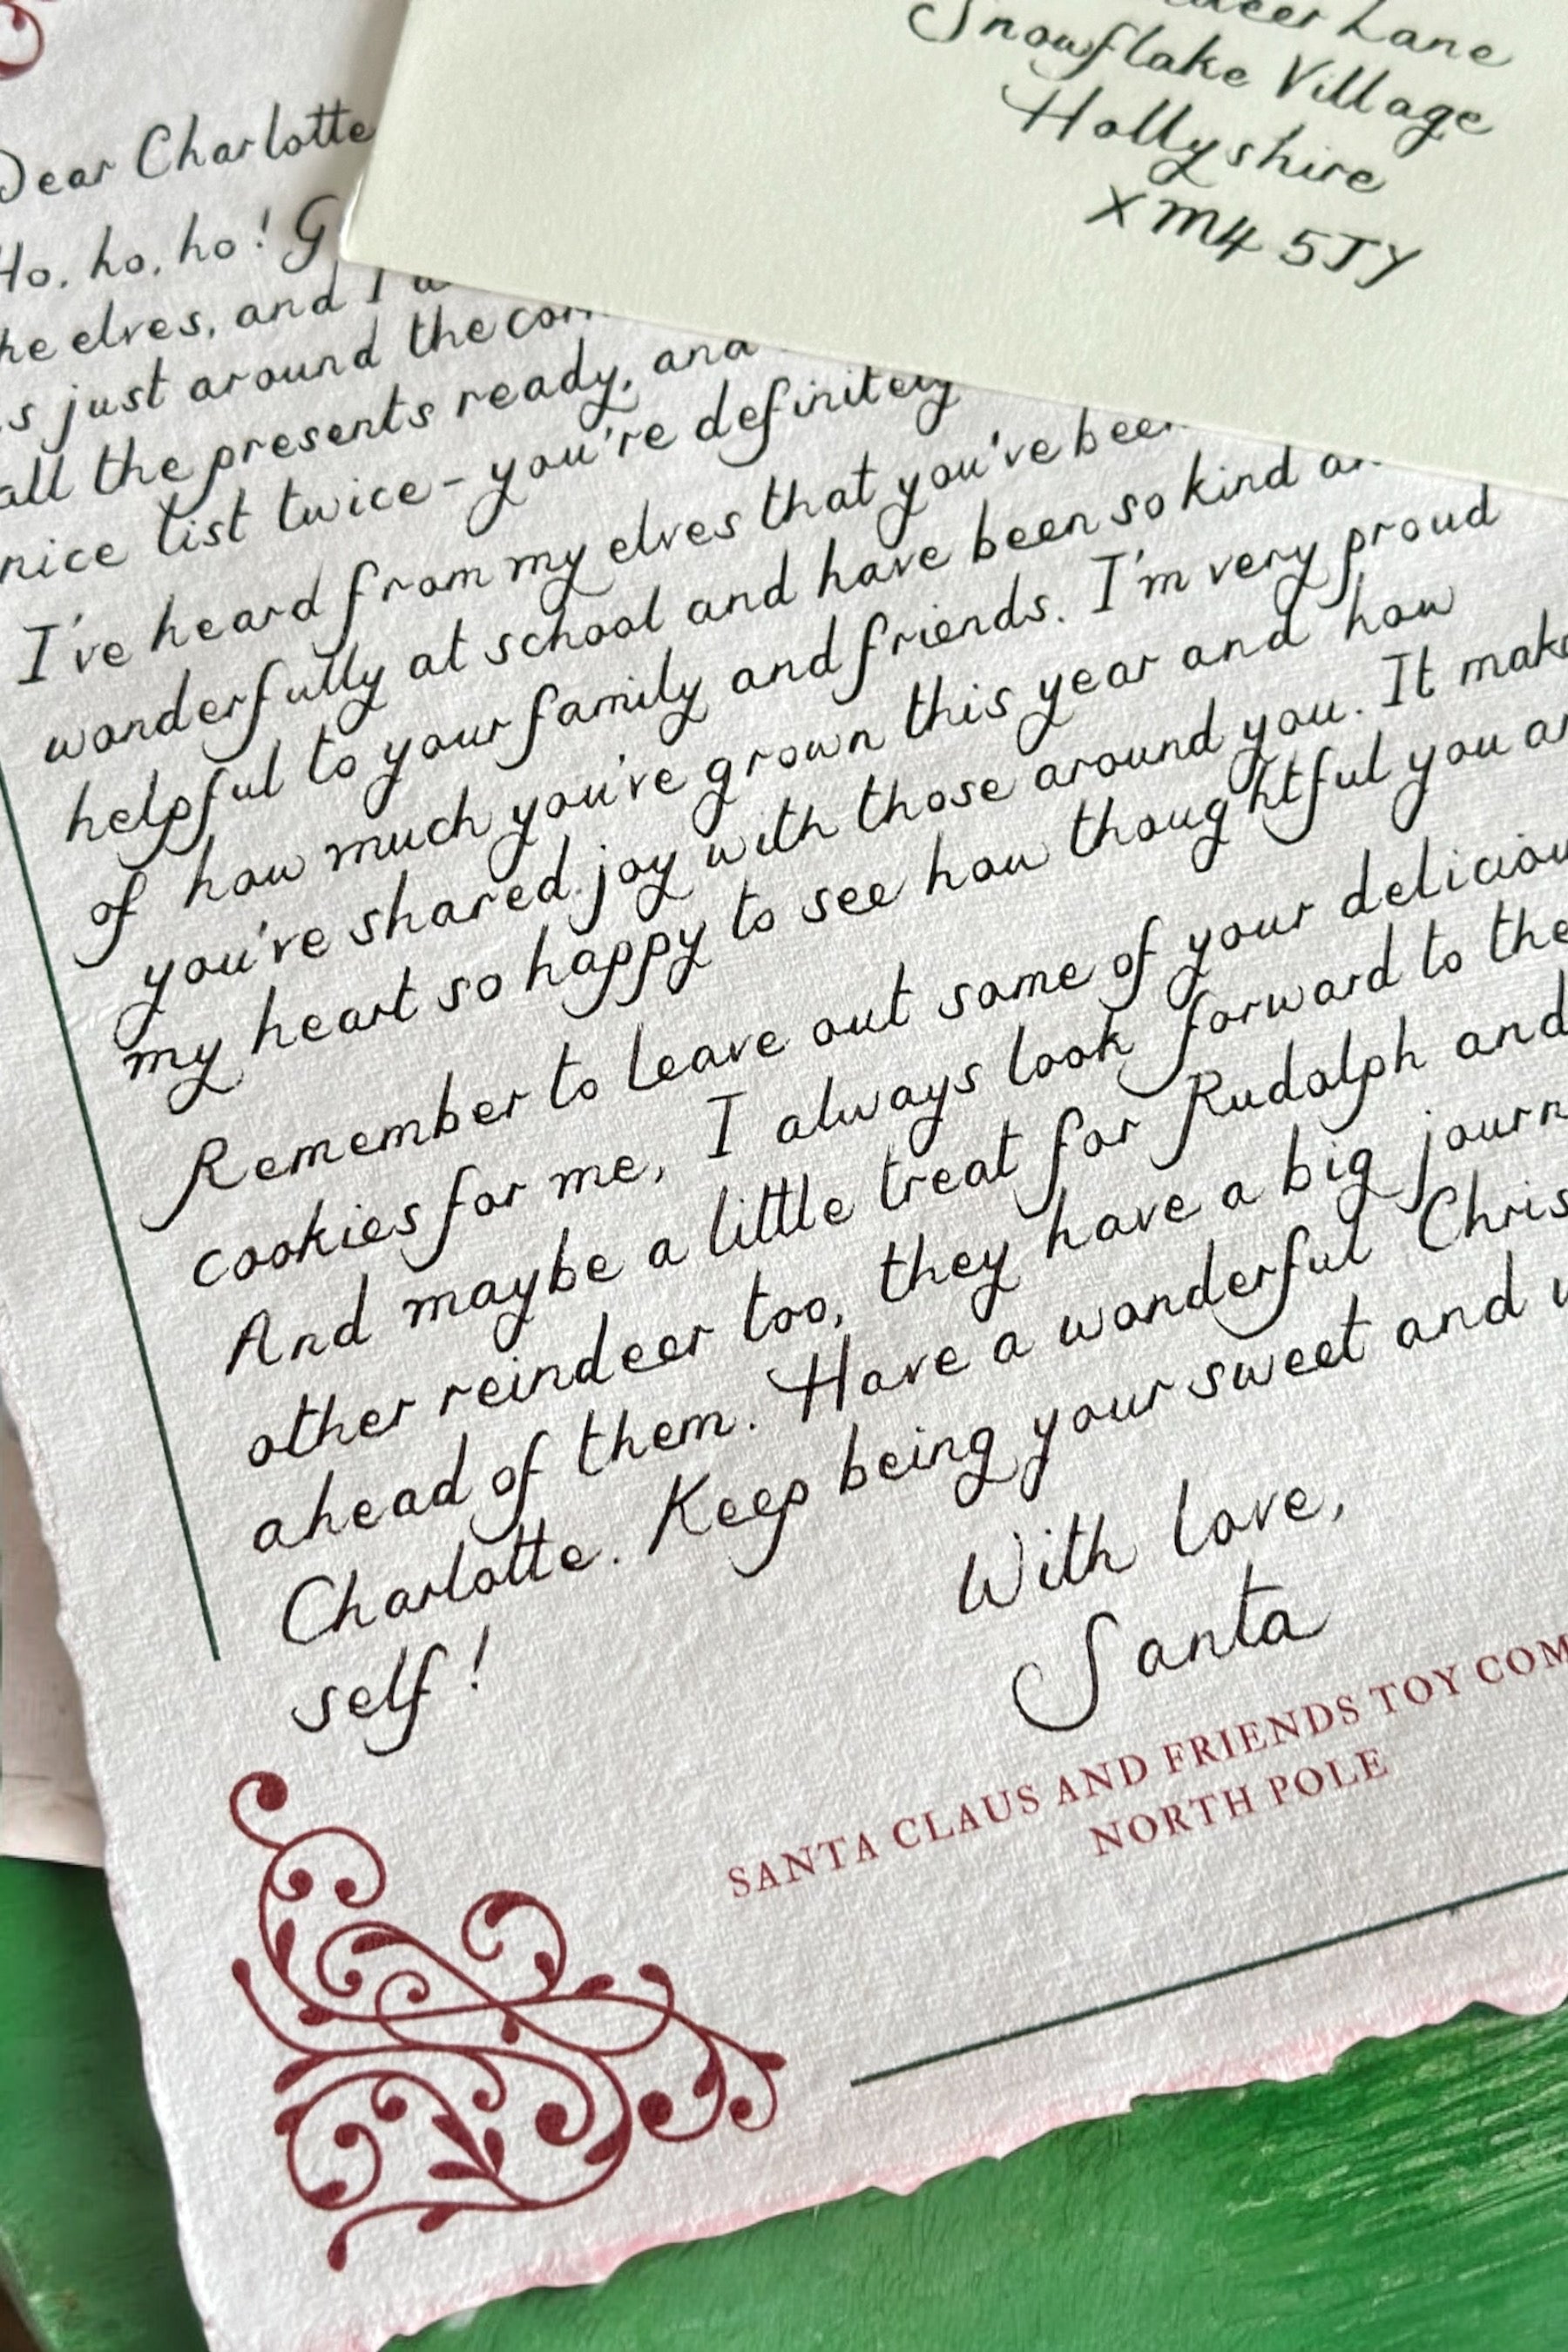 Lane
Snowflake Village
Hollyshire
XM4 5JY
Dear Charlotte
Ho, ho, ho! G
the elves, and I
is just around the
all the presents ready, and
nice list twice - you're definitely
I've heard from my elves that you've been
wonderfully at school and have been so kind
helpful to your family and friends. I'm very proud
of how much you've grown this year and how
you've shared joy with those around you. It
my heart so happy to see how thoughtful you
Remember to leave out some of your
cookies for me, I always look forward to
And maybe a little treat for Rudolph and
other reindeer too, they have a big
ahead of them. Have a wonderful
Charlotte. Keep being your sweet and
self!
With love,
Santa
SANTA CLAUS AND FRIENDS TOY
NORTH POLE